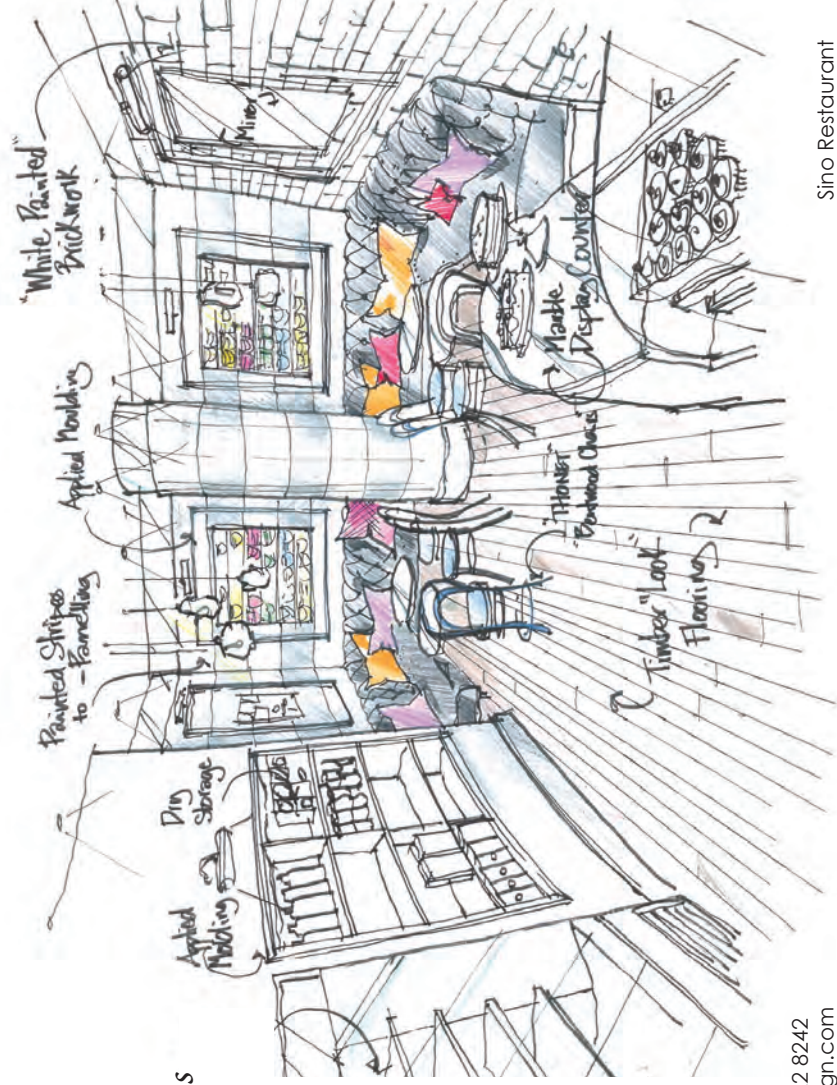 Applied
Moulding
Dry
Storage
Painted Stripes
to - Panelling
Applied Moulding
"White Painted"
Brickwork
Mirror
Marble
Display Counter
"THONET"
"Bentwood Chairs"
Timber "Look"
Flooring
s
2 8242
gn.com
Sino Restaurant